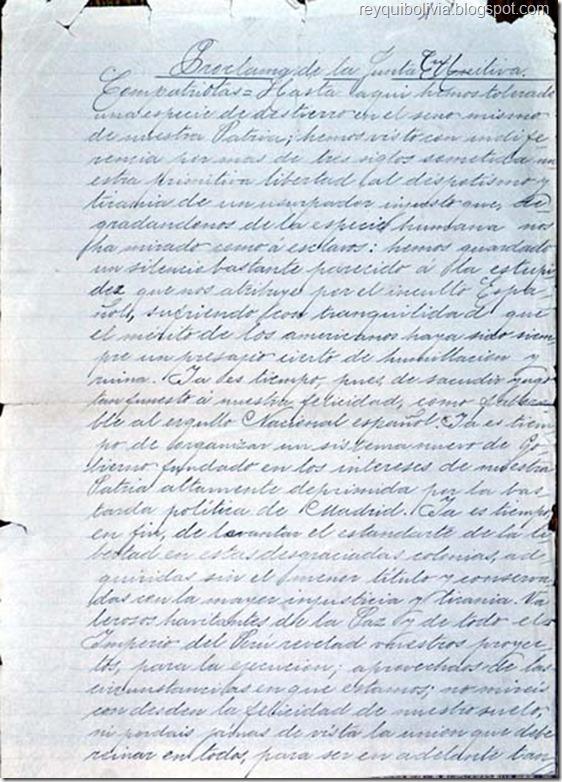 reyquibolivia.blogspot.com
Proclama de la Junta Tuitiva.
Compatriotas = Hasta aqui hemos tolerado
una especie de destierro en el seno mismo
de nuestra Patria; hemos visto con indife
rencia por mas de tres siglos sometida nu
estra primitiva libertad al despotismo y
tirania de un usurpador injusto que, de
gradandonos de la especie humana nos
ha mirado como á esclavos: hemos guardado
un silencio bastante parecido á la estupi
dez que nos atribuye por el inculto Espa-
ñol, sufriendo con tranquilidad que
el mérito de los americanos haya sido siem
pre un presagio cierto de humillacion y
ruina. Ya es tiempo, pues, de sacudir yugo
tan funesto á nuestra felicidad, como favora
ble al orgullo Nacional español. Ya es tiem
po de organizar un sistema nuevo de Go
bierno fundado en los intereses de nuestra
Patria altamente deprimida por la bas
tarda política de Madrid. Ya es tiempo
en fin, de levantar el estandarte de la li
bertad en estas desgraciadas colonias, ad
quiridas sin el menor titulo y conserva
das con la mayor injusticia y tirania. Va
lerosos habitantes de la Paz y de todo el
Imperio del Perú revelad vuestros proyec
tos, para la ejecucion; aprovechaos de las
circunstancias en que estamos; no mireis
con desden la felicidad de nuestro suelo,
ni perdais jamas de vista la union que debe
reinar en todos, para ser en adelante tan